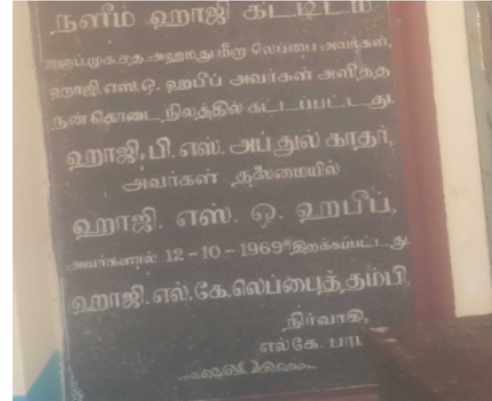 நளீம் ஹாஜி கட்டிடம்
ஜனாப்.முக.சத.அஹமது மீறு லெப்பை அவர்கள்,
ஹாஜி.எஸ்.ஓ. ஹபீப் அவர்கள் அளித்த
நன்கொடை நிலத்தில் கட்டப்பட்டது.
ஹாஜி,பி.எஸ். அப்துல் காதர்,
அவர்கள் தலைமையில்
ஹாஜி. எஸ். ஓ. ஹபீப்,
அவர்களால் 12-10-1969 திறக்கப்பட்டது
ஹாஜி.எல்.கே.லெப்பைத்தம்பி,
நிர்வாகி,
எல்கே.